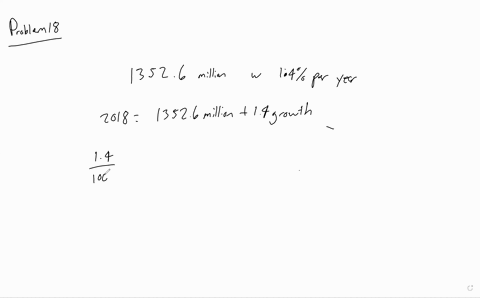 Problem 18
1352.6 million w 1.4% per year
2018 = 1352.6 million + 1.4 growth
1.4
100